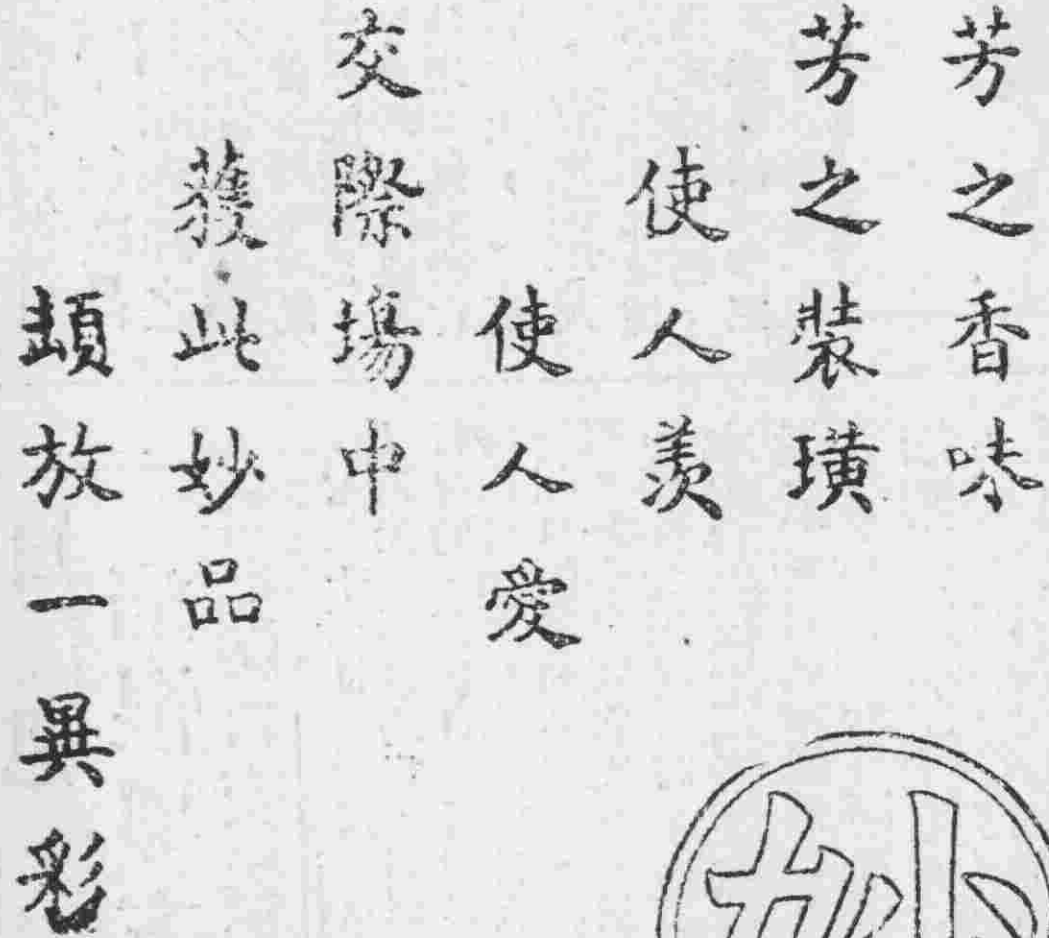 芳之香味
芳之裝璜
使人羨
使人愛
交際場中
獲此妙品
頓放一異彩
妙